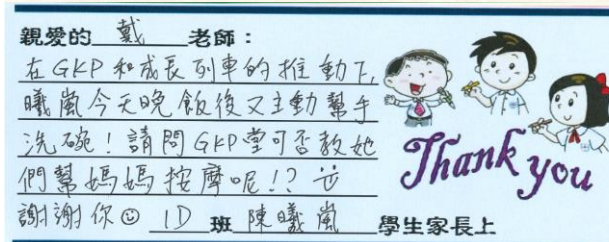 親愛的 戴 老師：
在GKP和成長列車的推動下,
曦嵐今天晚飯後又主動幫手
洗碗！請問GKP堂可否教她
們幫媽媽按摩呢!? ü
謝謝你☺ 1D 班 陳曦嵐 學生家長上
Thank you